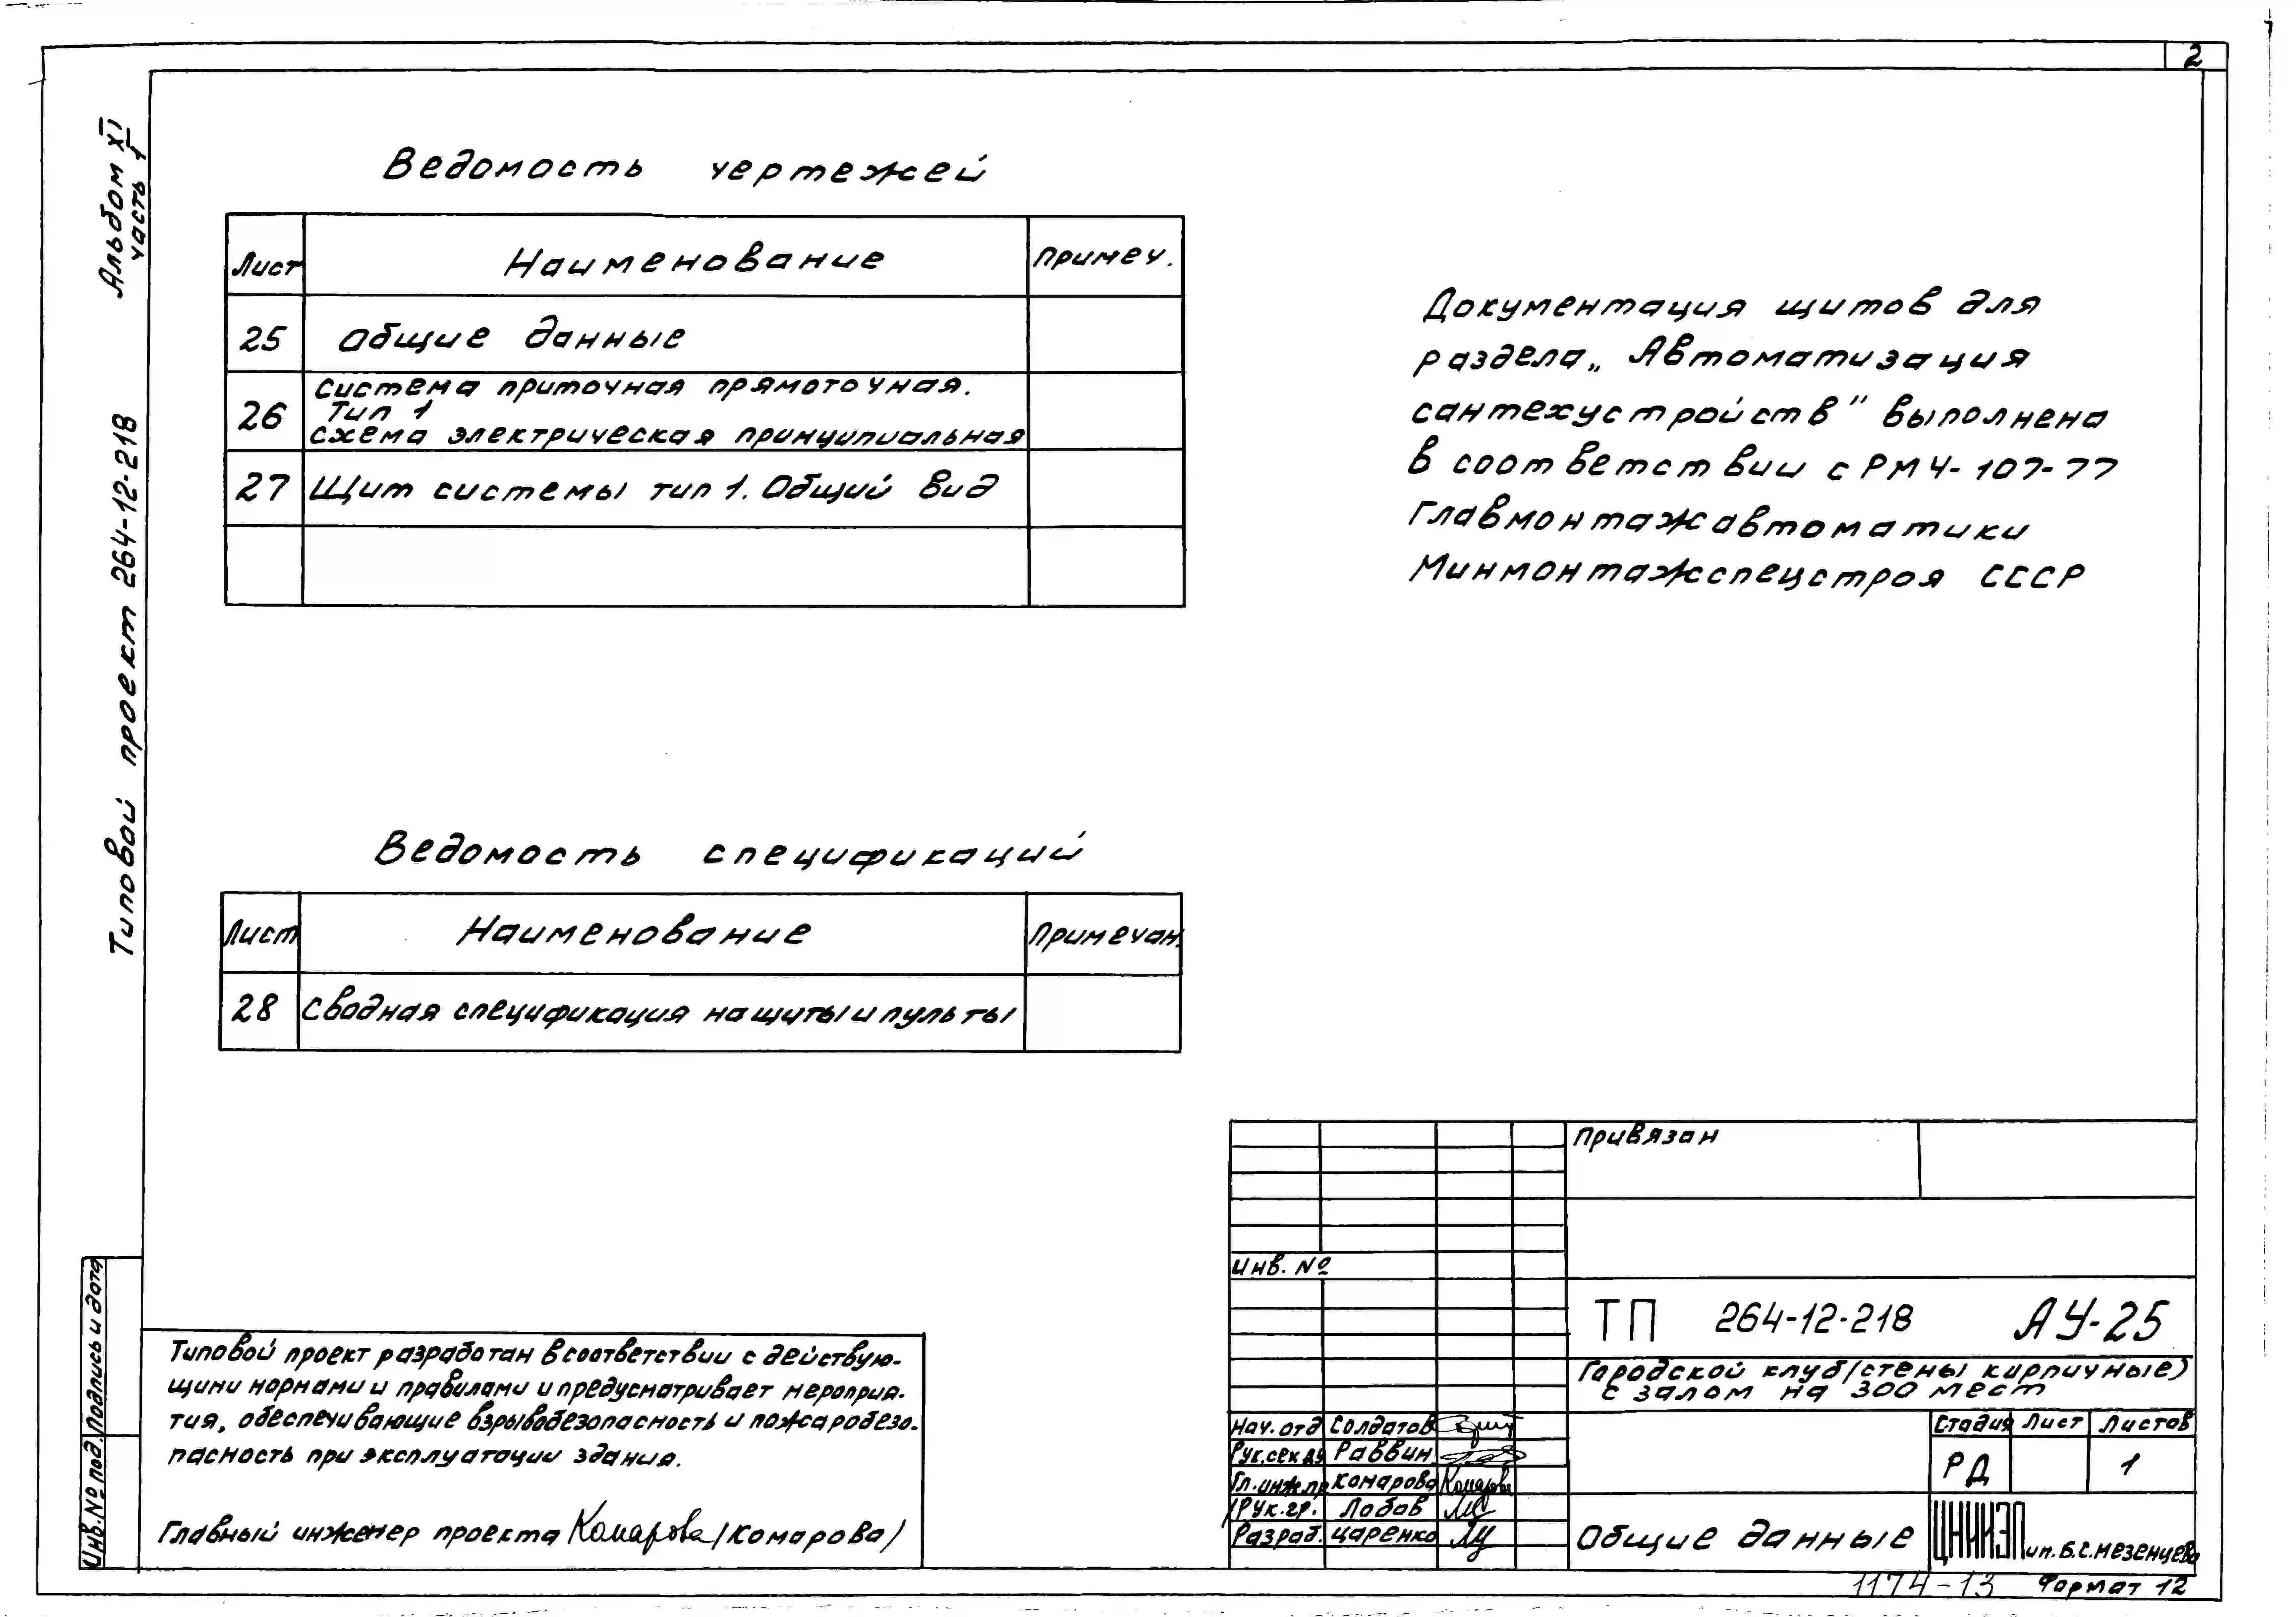 2
Альбом XI
часть 1
Типовой проект 264-12-218
Ведомость чертежей
Лист Наименование Примеч.
25 Общие данные
Система приточная прямоточная.
26 Тип 1
схема электрическая принципиальная
27 Щит системы тип 1. Общий вид
Документация щитов для
раздела „Автоматизация
сантехустройств" выполнена
в соответствии с РМ4-107-77
Главмонтажавтоматики
Минмонтажспецстроя СССР
Ведомость спецификаций
Лист Наименование Примечан.
28 Сводная спецификация на щиты и пульты
Привязан
Инв. №
ТП 264-12-218 АУ-25
Городской клуб (стены кирпичные)
с залом на 300 мест
Нач. отд Солдатов
Рук. сек ау Раввин
Гл. инж. пр Комарова Комарова
Рук. гр. Лобов
Разраб. Царенко
Стадия Лист Листов
РД 1
Общие данные
ЦНИИЭП им. Б.С. Мезенцева
1174-13 Формат 12
Типовой проект разработан в соответствии с действую-
щими нормами и правилами и предусматривает мероприя-
тия, обеспечивающие взрывобезопасность и пожаробезо-
пасность при эксплуатации здания.
Главный инженер проекта Комарова /Комарова/
Инв. № под. Подпись и дата